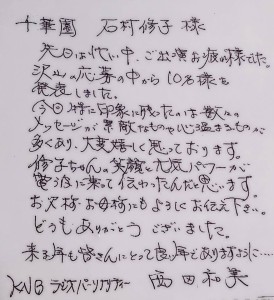 十華園 石村修子様
先日は忙しい中、ご出演お疲れ様でした。
沢山の応募の中から10名様を
発表しました。
今回特に印象に残ったのは数々の
メッセージが素敵なものや心温まるものが
多くあり、大変嬉しく思っております。
修子ちゃんの笑顔と元気パワーが
電波に乗って伝わったんだと思います。
お父様お母様にもよろしくお伝え下さい。
どうもありがとうございました。
来る年も皆さんにとって良い年でありますように……
KNB ラジオパーソナリティー 西田和美